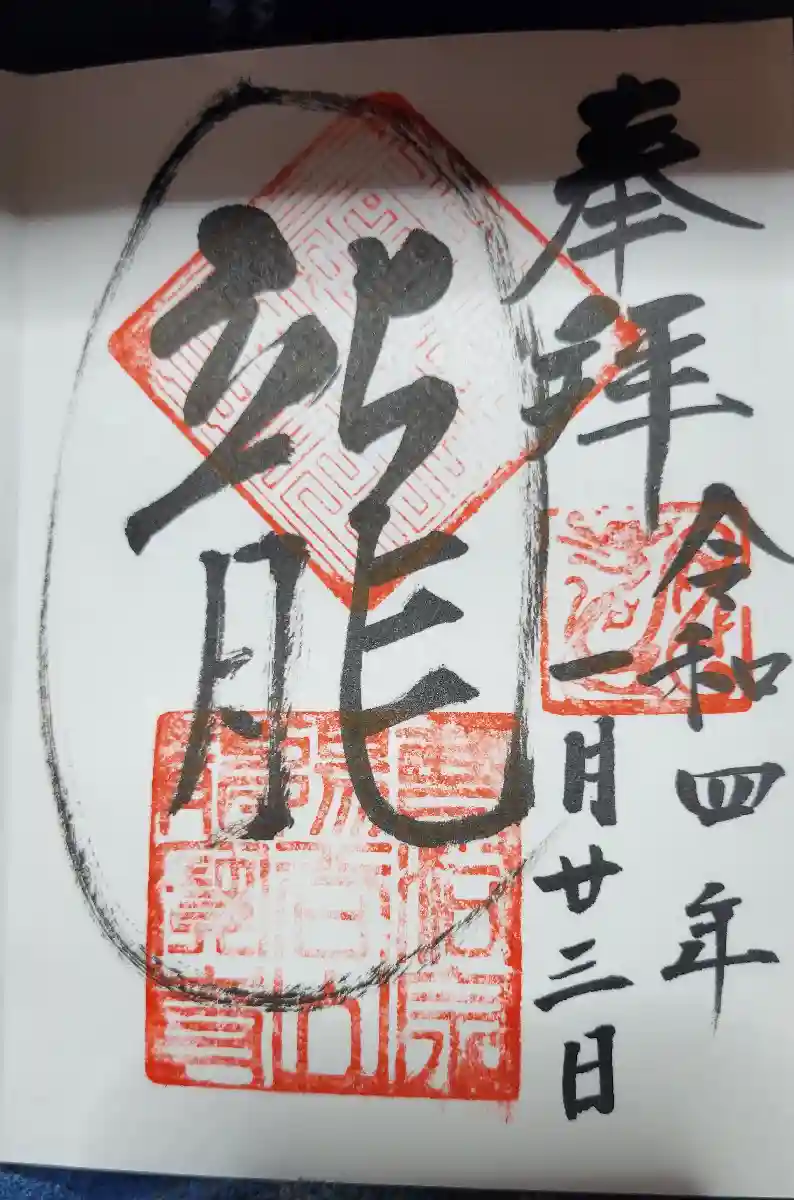 奉拝
令和四年
一月廿三日
龍